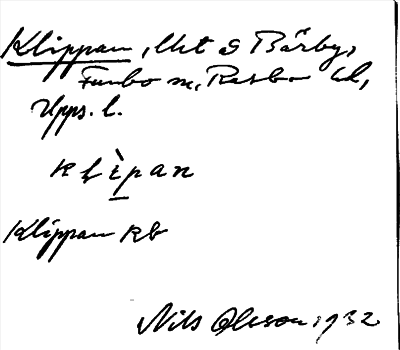 Klippan, lht S Bärby,
Funbo sn, Rasbo hd,
Upps. l.
klìpan
Klippan kb
Nils Olsson 1932